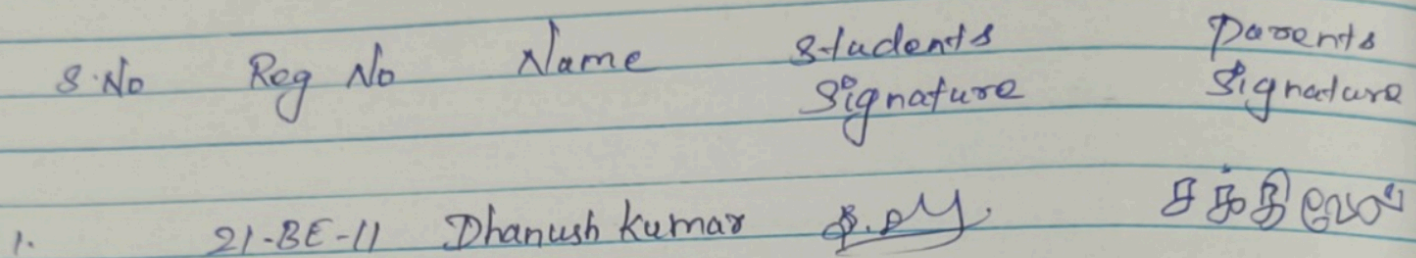 S.No Reg No Name Students Signature Parents Signature
1. 21-BE-11 Dhanush kumar சக்திவேல்